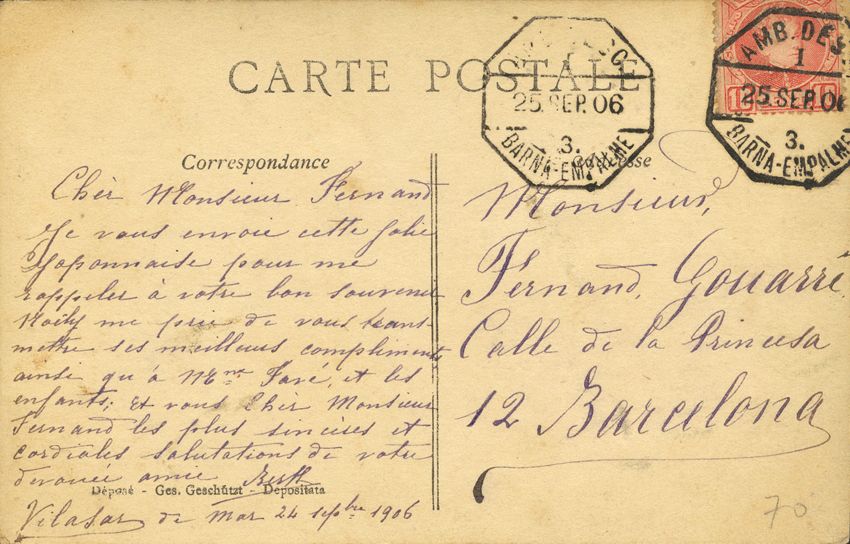 CARTE POSTALE
25 SEP. 06
3.
BARNA-EMPALME
AMB. DES
1
25 SEP. 06
3.
BARNA-EMPALME
Correspondance
Chèr Monsieur Fernand
Je vous envoie cette Jolie
Japonnaise pour me
rappeler à votre bon souvenir
me prie de vous trans-
mettre ses meilleurs compliments
ainsi qu'à Mme Favé, et les
enfants; et vous Chèr Monsieur
Fernand les plus sincères et
cordiales salutations de votre
devouée amie Berth
Déposé - Ges. Geschützt - Depositata
Vilasar de Mar 24 septbre 1906
Monsieur,
Fernand, Gouarré,
Calle de la Princesa
12 Barcelona
70